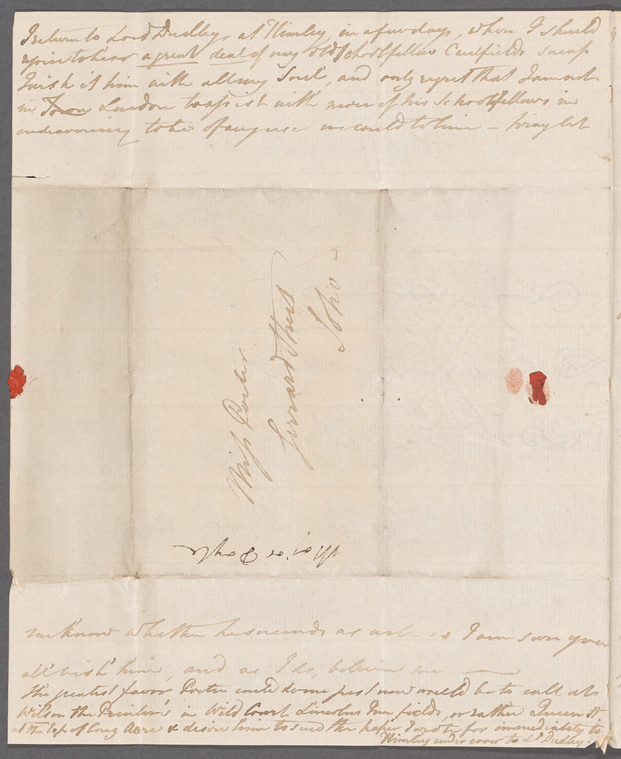 I return to Lord Dudleys at Himley, in a few days, where I should
rejoice to hear a great deal of my old schoolfellow Caulfields success
I wish it him with all my Soul, and only regret that I am not
in Town London to assist with more of his Schoolfellows in
endeavouring to be of any use we could to him – pray let
Miss Porter
Gerrard Street
Soho
Major Dayly
me know whether he succeeds as well as I am sure you
all wish him, and as I do, believe me —
The greatest favor Porter could do me just now would be to call at
Wilson the Printers in Wild Court Lincolns Inn fields, or rather Queen St
at the top of Long Acre & desire him to send the paper I wrote for immediately to
Himley under cover to Ld Dudley